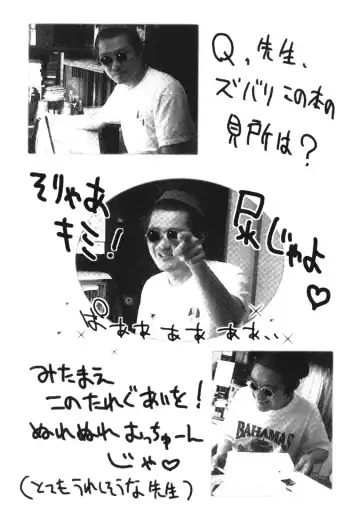 Q、先生、
ズバリこの本の
見所は？
そりゃあ
キミ！
尿じゃよ♡
ぱぁぁぁぁぁぁぁ、、
みたまえ
このたれぐあいを！
ぬれぬれむっちゅーん
じゃ♡
（とてもうれしそうな先生）
BAHAMAS